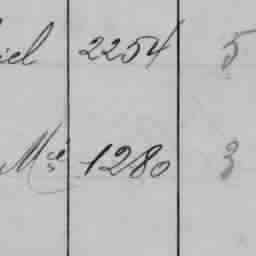 iel 2254 5
Mcé 1280 3